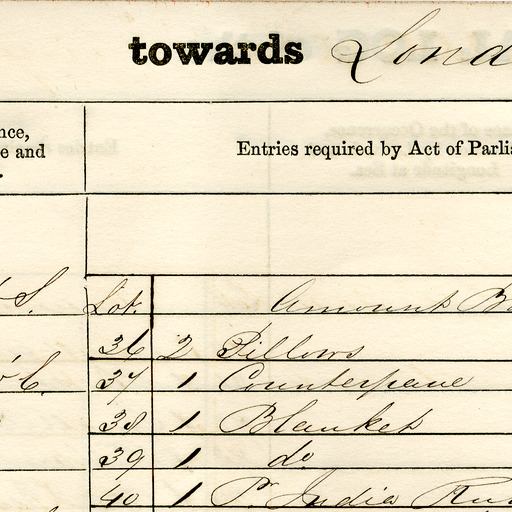 towards Lond
nce,
e and
Entries required by Act of Parlia
S. Lot. Amount B
36 2 Pillows
37 1 Counterpane
38 1 Blanket
39 1 do
40 1 Pr India Ru